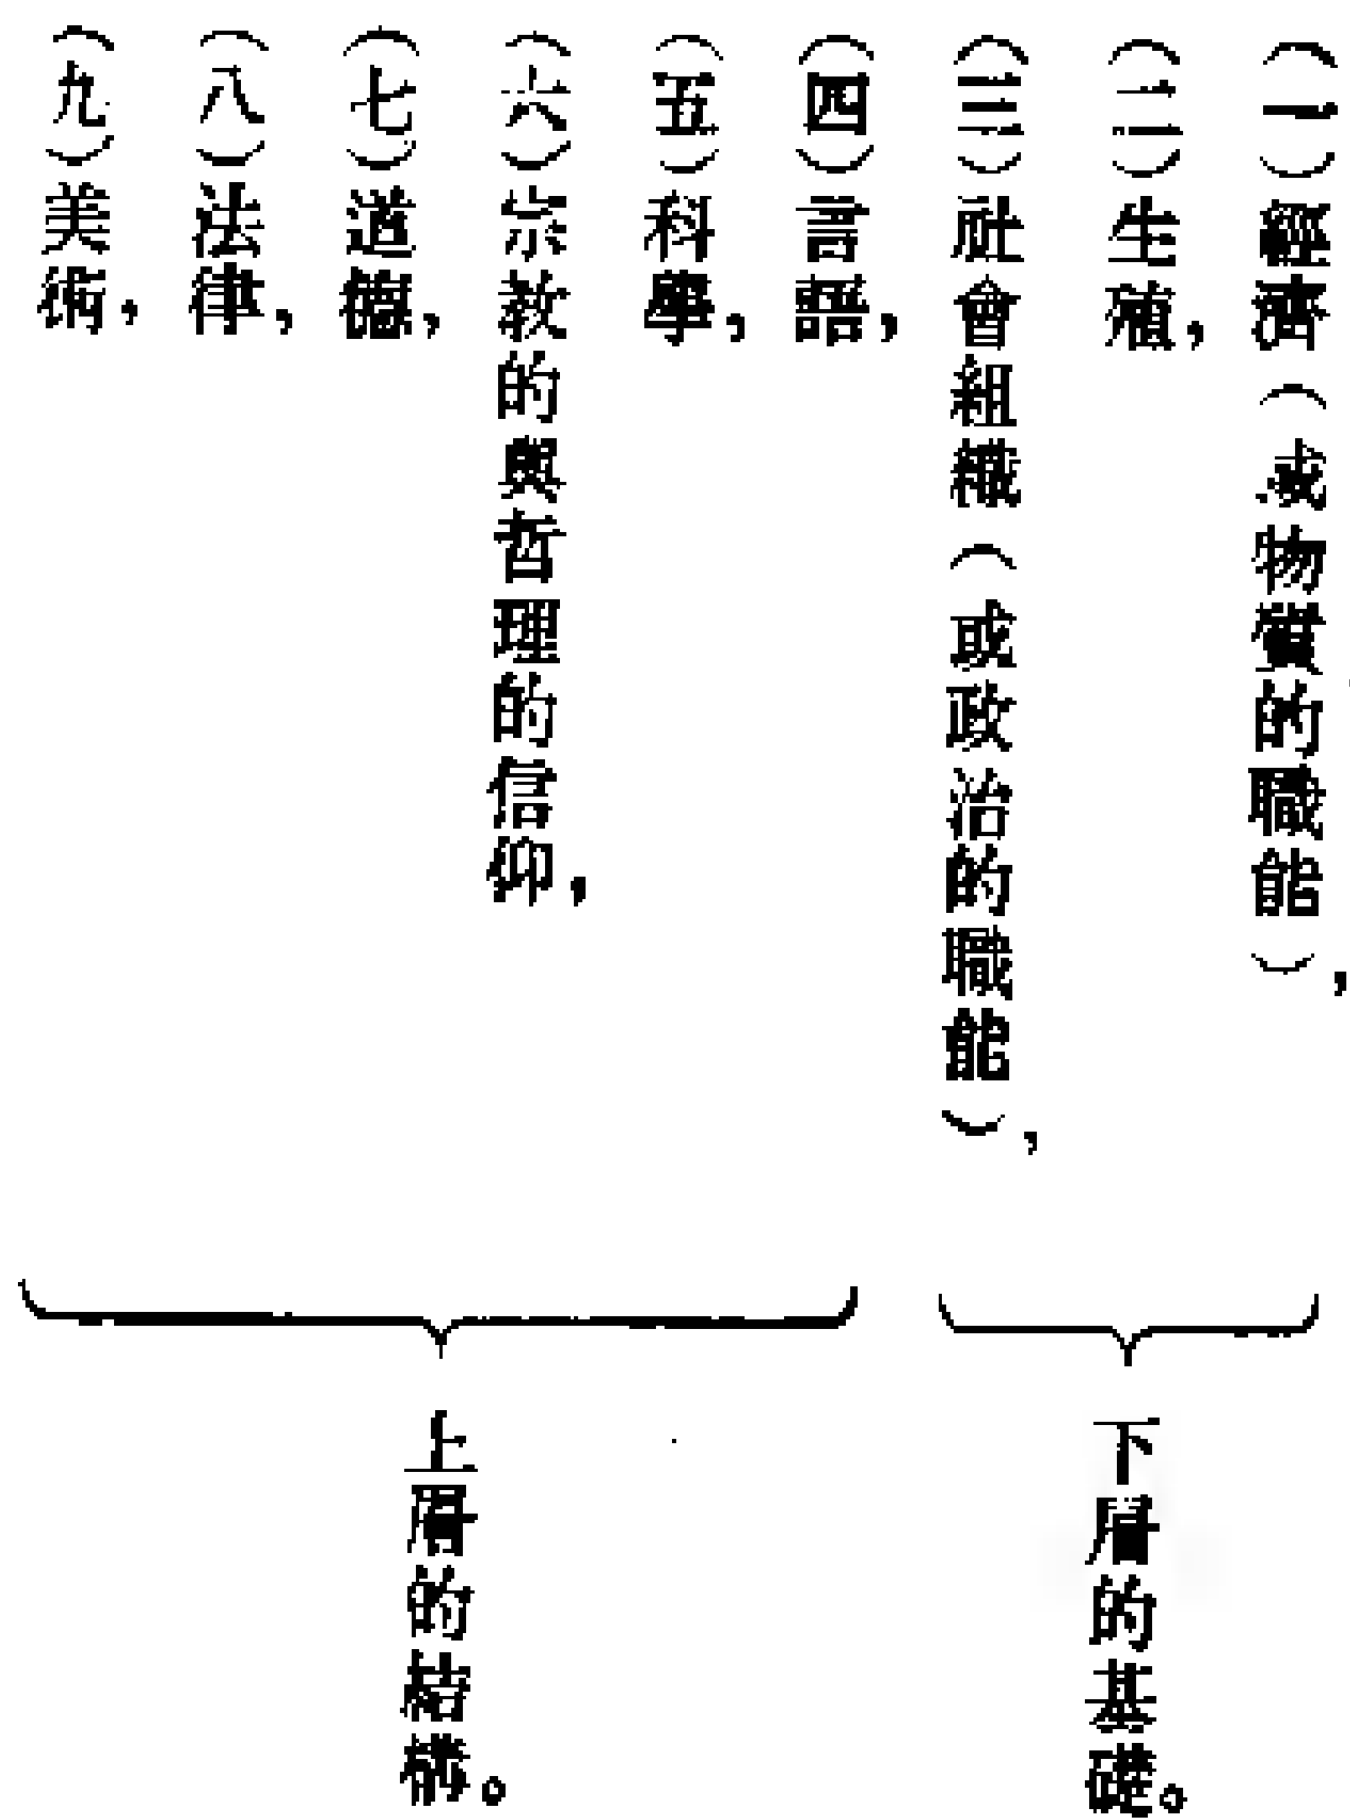 (一)經濟(或物質的職能),
(二)生殖,
(三)社會組織(或政治的職能),
下層的基礎。
(四)言語,
(五)科學,
(六)宗教的與哲理的信仰,
(七)道德,
(八)法律,
(九)美術,
上層的結構。